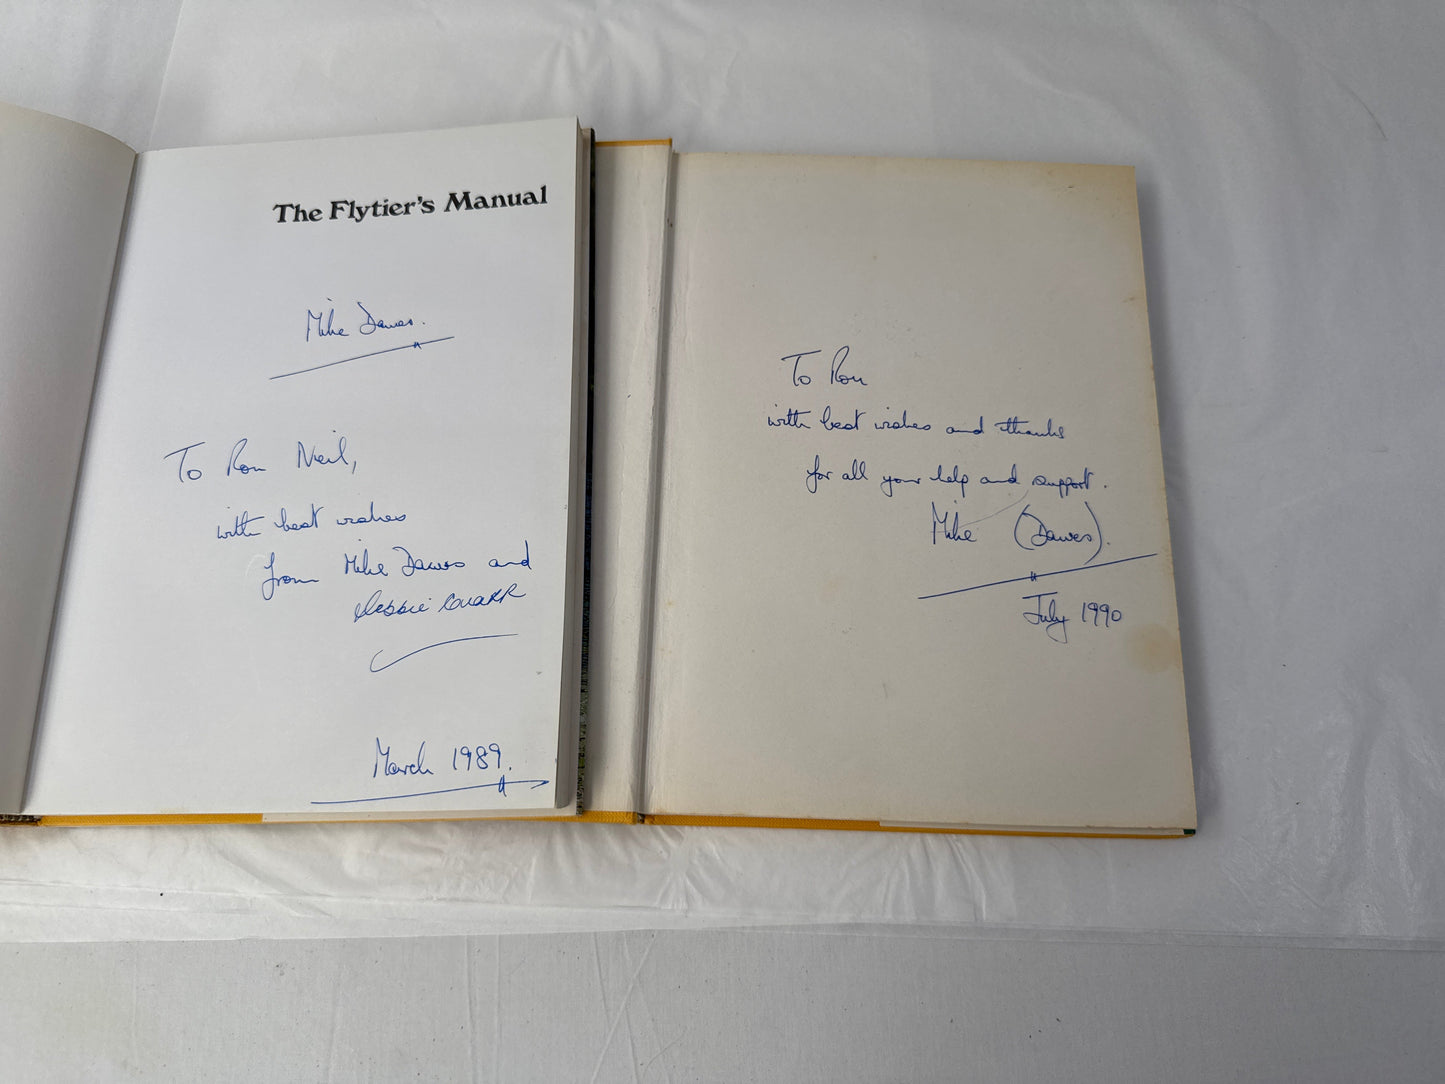 The Flytier's Manual
Mike Dawes.
To Ron Neil,
with best wishes
from Mike Dawes and
Debbie
March 1989.
To Ron
with best wishes and thanks
for all your help and support.
Mike (Dawes).
July 1990